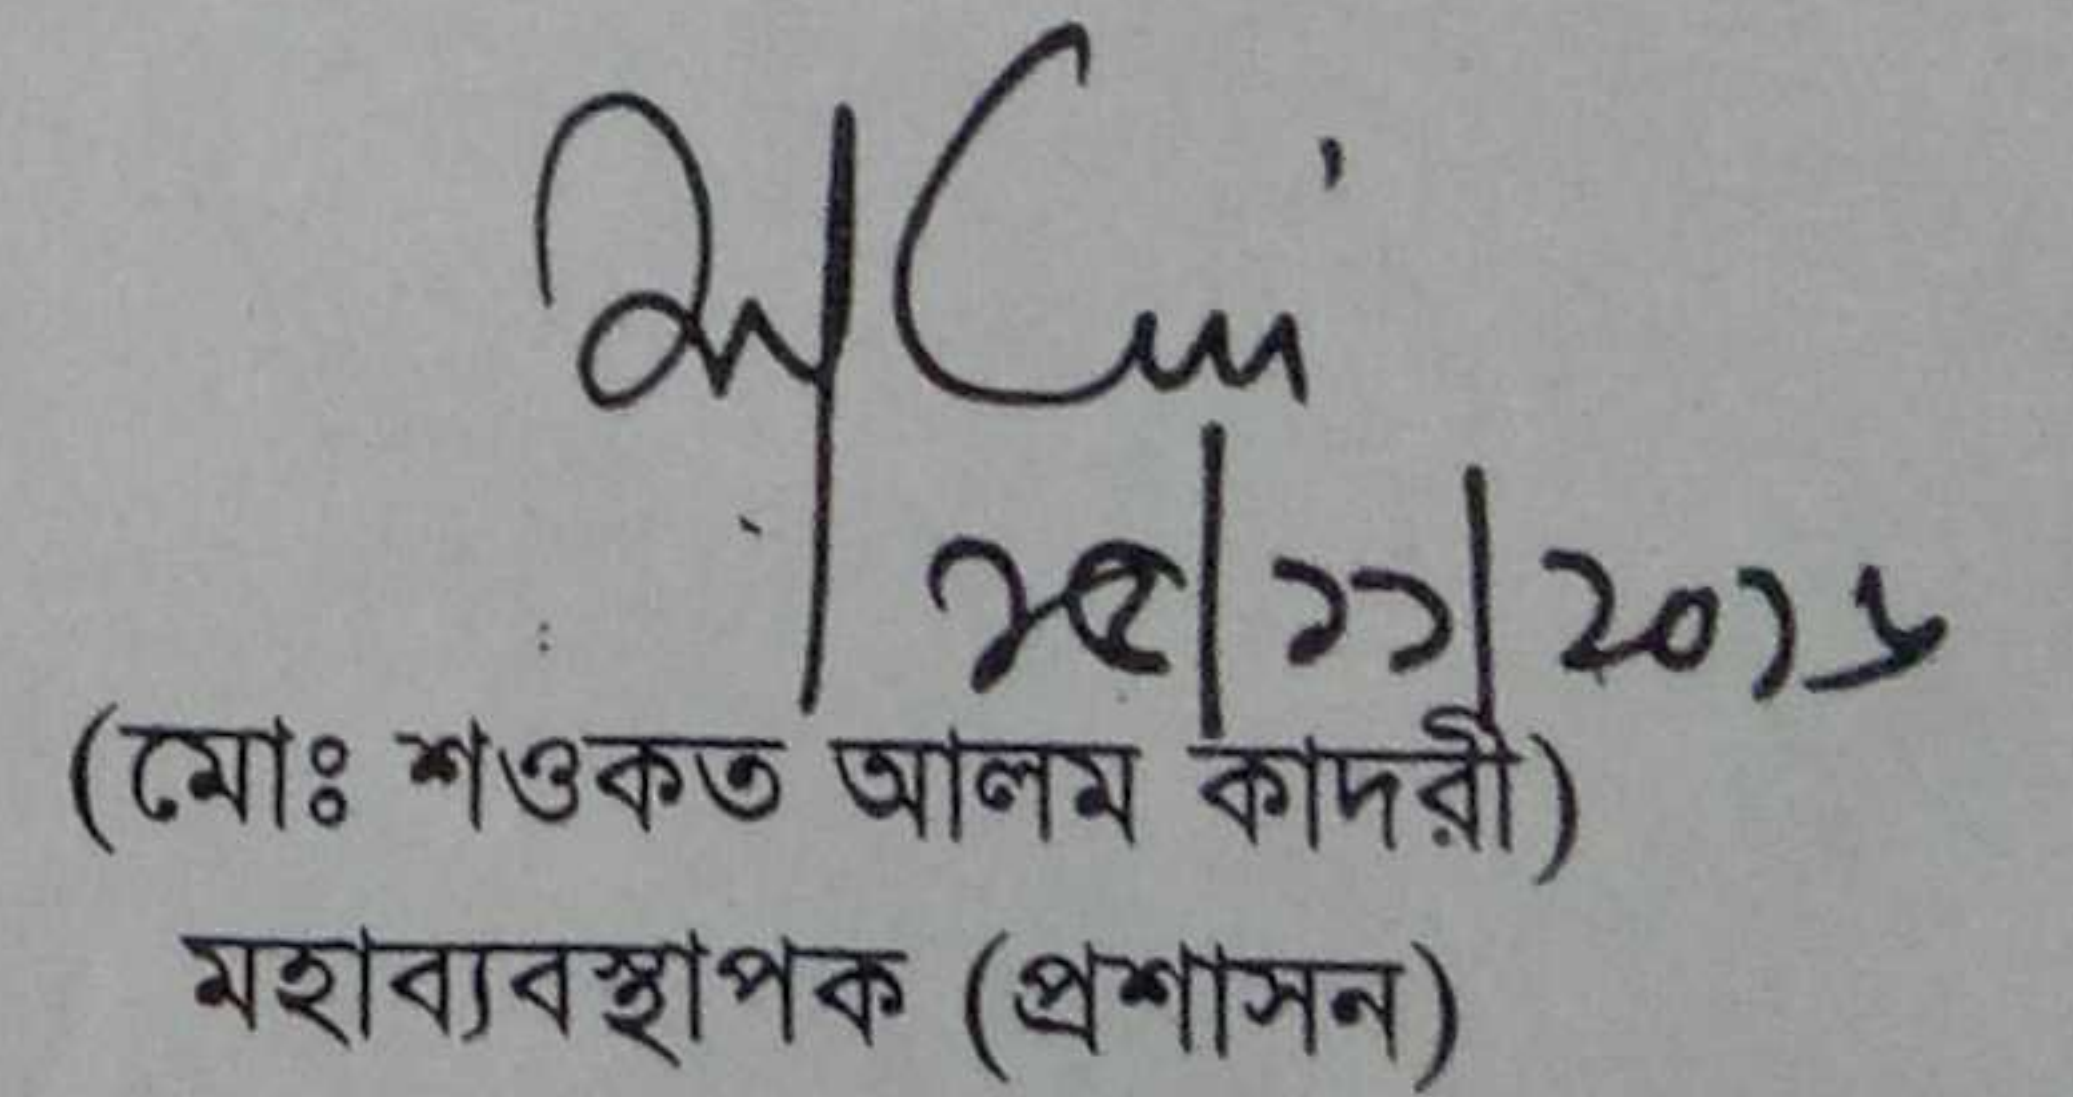 ২৫/১১/২০১৬
(মোঃ শওকত আলম কাদরী)
মহাব্যবস্থাপক (প্রশাসন)